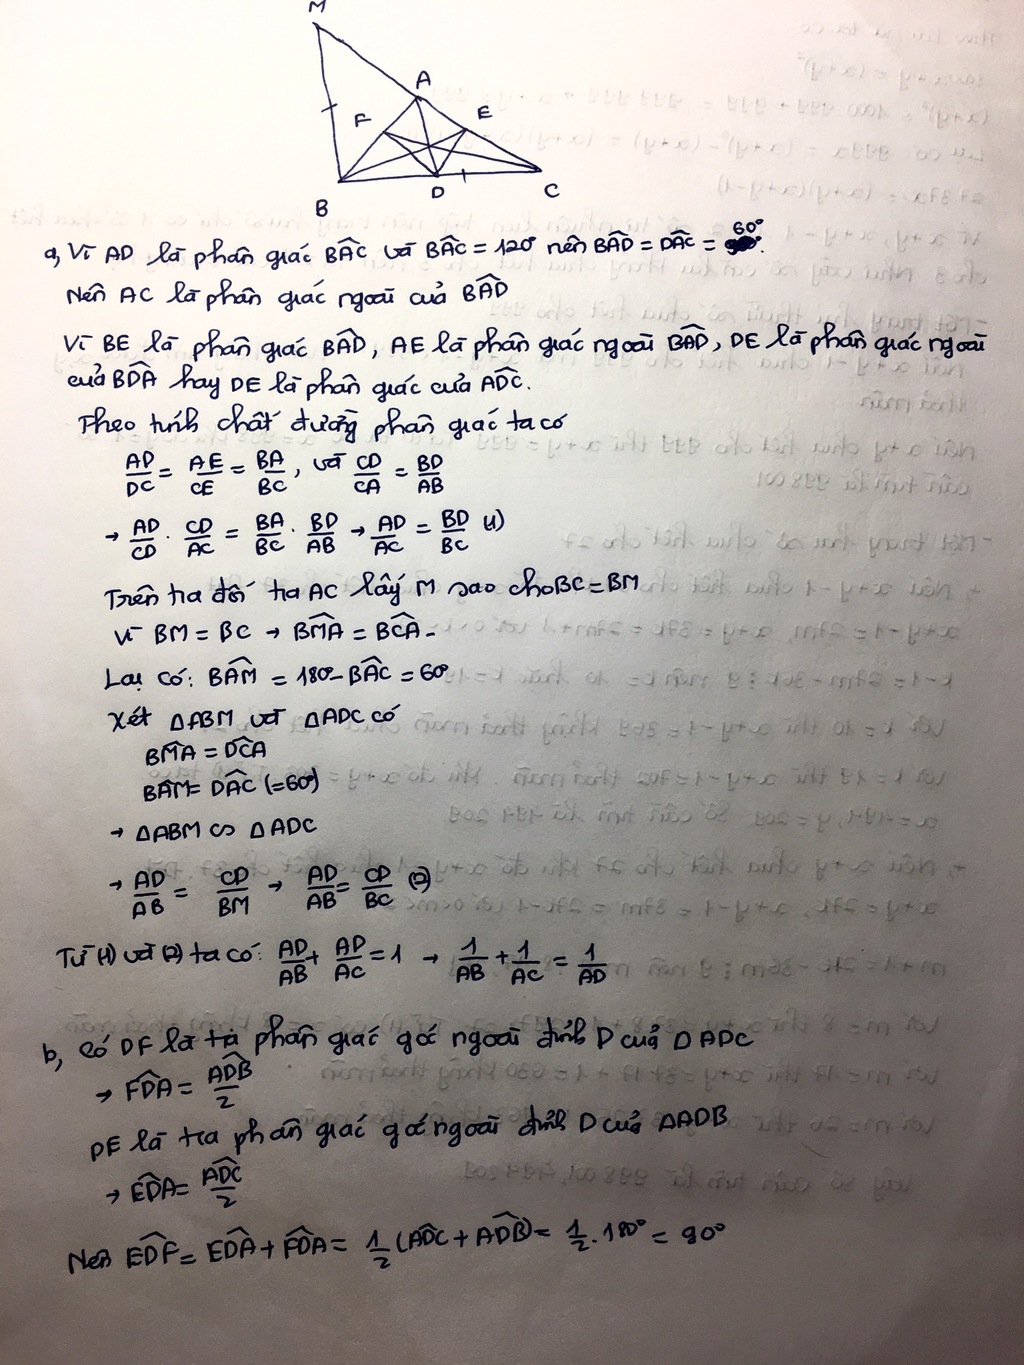 M
A
F
E
B
D
C
a, Vì AD là phân giác BÂC và BÂC = 120° nên BÂD = DÂC = 60°.
Nên AC là phân giác ngoài của BÂD
Vì BE là phân giác BÂD, AE là phân giác ngoài BÂD, DE là phân giác ngoài
của BD̂A hay DE là phân giác của AD̂C.
Theo tính chất đường phân giác ta có
AD/DC = AE/CE = BA/BC, và CD/CA = BD/AB
→ AD/CD . CD/AC = BA/BC . BD/AB → AD/AC = BD/BC (1)
Trên tia đối tia AC lấy M sao cho BC = BM
Vì BM = BC → BM̂A = BĈA.
Lại có: BÂM = 180° - BÂC = 60°
Xét ΔABM và ΔADC có
BM̂A = DĈA
BÂM = DÂC (=60°)
→ ΔABM ∽ ΔADC
→ AD/AB = CD/BM → AD/AB = CD/BC (2)
Từ (1) và (2) ta có: AD/AB + AD/AC = 1 → 1/AB + 1/AC = 1/AD
b, Có DF là tia phân giác góc ngoài đỉnh D của ΔADC
→ FD̂A = AD̂B/2
DE là tia phân giác góc ngoài đỉnh D của ΔADB
→ ED̂A = AD̂C/2
Nên ED̂F = ED̂A + FD̂A = 1/2 (AD̂C + AD̂B) = 1/2 . 180° = 90°